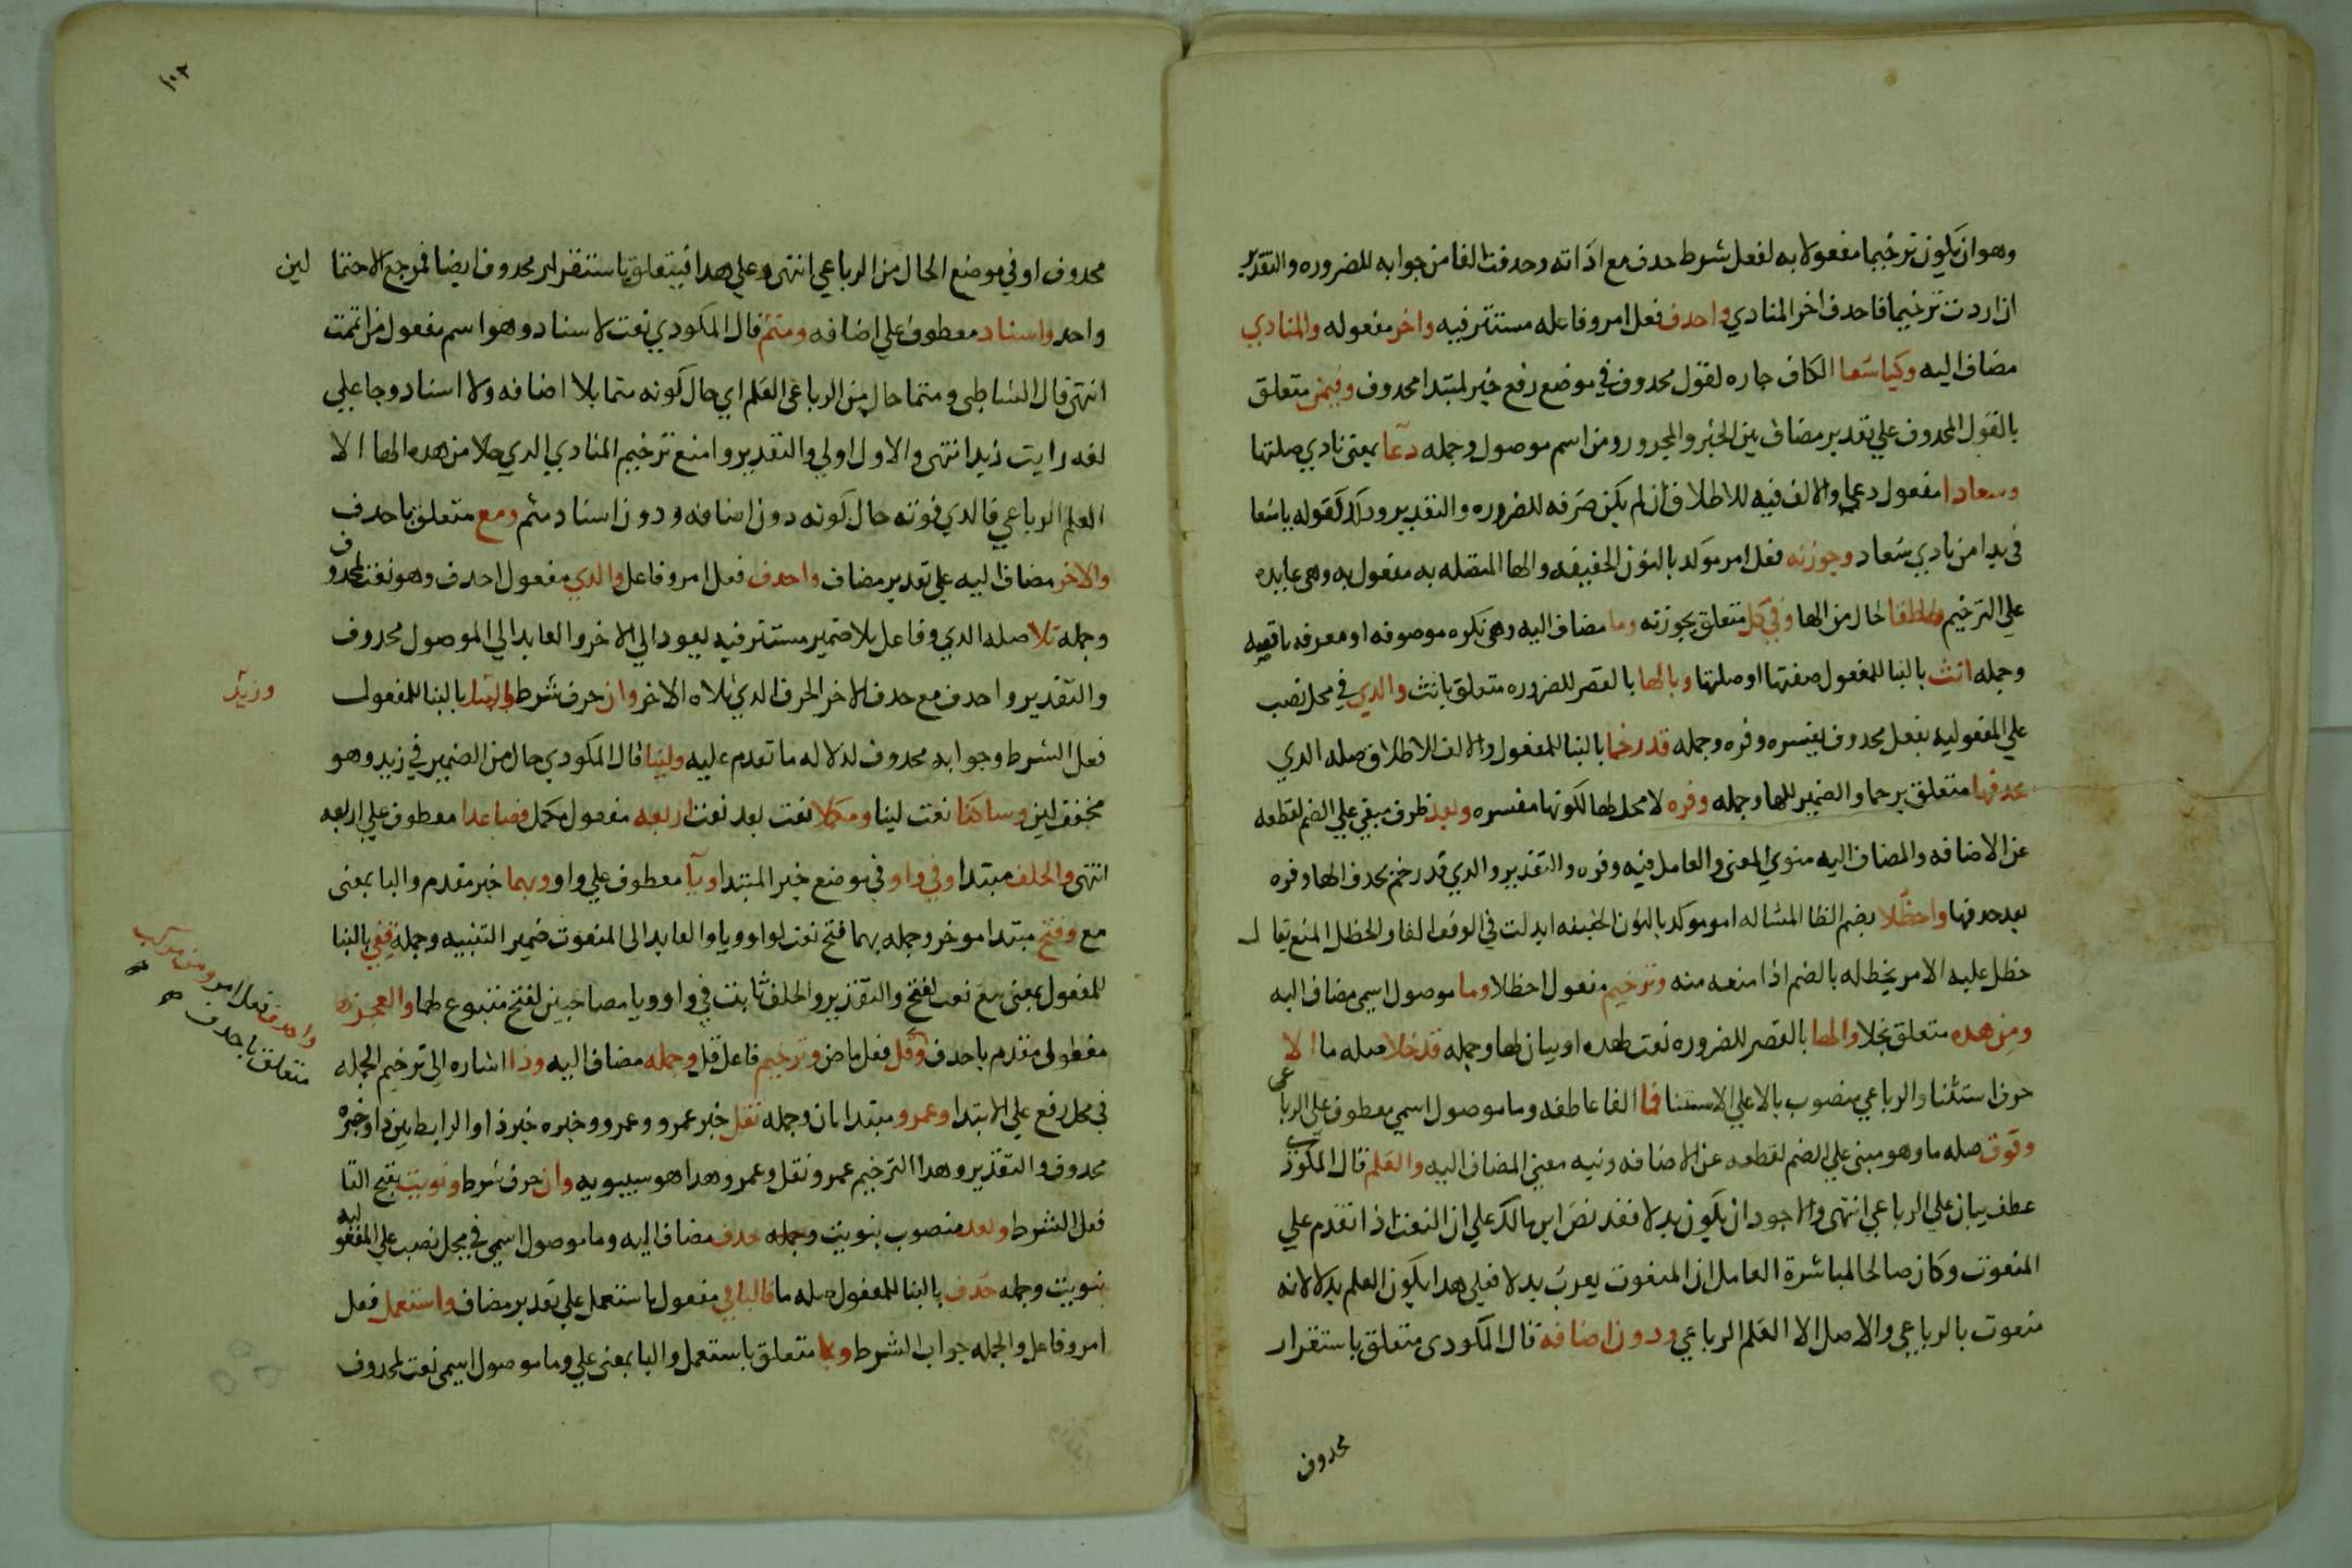 وهو ان يكون ترخيما مفعولا به لفعل شرط حدف مع اداته وحدفت الفا من جوابه للضروره والتقدير
ان اردت ترخيما فاحدف اخر المنادي واحدف فعل امر وفاعله مستتر فيه واخر مفعوله والمنادي
مضاف اليه وكياسعا الكاف جاره لقول محدوف في موضع رفع خبر لمبتدا محدوف وفيمن متعلق
بالقول المحدوف علي تقدير مضاف بين الخبر والمجرور ومن اسم موصول وجمله دعا بمعنى نادي صلتها
وسعادا مفعول دعي والالف فيه للاطلاق ان لم يكن صرفه للضروره والتقدير ودلك كقوله ياسعا
في ندا من نادي سعاد وجوزنه فعل امر موكد بالنون الخفيفه والها المتصله به مفعول به وهي عايده
علي الترخيم ومطلقا حال من الها وفي كل متعلق بجوزنه وما مضاف اليه وهي نكره موصوفه او معرفه ناقصه
وجمله انث بالبنا للمفعول صفتها او صلتها وبالها بالقصر للضروره متعلق بانث والدي في محل نصب
علي المفعوليه بفعل محدوف يفسره وفره وجمله قد رخما بالبنا للمفعول والالف للاطلاق صله الدي
بحدفها متعلق برخما والضمير للها وجمله وفره لا محل لها لكونها مفسره وبعد ظرف مبني علي الضم لقطعه
عن الاضافه والمضاف اليه منوي المعنى والعامل فيه وفره والتقدير والدي قد رخم بحدف الها وفره
بعد حدفها واحظلا بضم الظا المشاله امر موكد بالنون الخفيفه ابدلت في الوقف الفا والحظل المنع يقال
حظل عليه الامر يحظله بالضم ادا منعه منه وترخيم مفعول احظلا وما موصول اسمي مضاف اليه
ومن هده متعلق بخلا والها بالقصر للضروره نعت لهده او بيان لها وجمله قد خلا صله ما الا
حرف استثنا والرباعي منصوب بالا علي الاستثنا فما الفا عاطفه وما موصول اسمي معطوف علي الرباعي
وفوق صله ما وهو مبني علي الضم لقطعه عن الاضافه ونيه معنى المضاف اليه والعلم قال المكودي
عطف بيان علي الرباعي انتهى والاجود ان يكون بدلا فقد نص ابن مالك علي ان النعت ادا تقدم علي
المنعوت وكان صالحا لمباشرة العامل ان المنعوت يعرب بدلا فعلى هدا يكون العلم بدلا لانه
منعوت بالرباعي والاصل الا العلم الرباعي ودون اضافه قال المكودى متعلق باستقرار
محدوف
محدوف او في موضع الحال من الرباعي انتهى وعلي هدا فيتعلق باستقرار محدوف ايضا فمرجع الاحتما لين
واحد واسناد معطوف علي اضافه ومتم قال المكودي نعت لاسناد وهو اسم مفعول من اتممت
انتهى قال الشاطبي ومتما حال من الرباعي العلم اي حال كونه متما بلا اضافه ولا اسناد وجا علي
لغه رايت زيد انتهى والاول اولي والتقدير وامنع ترخيم المنادي الدي خلا من هده الها الا
العلم الرباعي فالدي فوقه حال كونه دون اضافه ودون اسناد متم ومع متعلق باحدف
والاخر مضاف اليه على تقدير مضاف واحدف فعل امر وفاعل والدي مفعول احدف وهو نعت لمحدوف
وجمله تلا صله الدي وفاعل تلا ضمير مستتر فيه يعود الي الاخر والعايد الي الموصول محدوف
والتقدير واحدف مع حدف الاخر الحرف الدي تلاه الاخر وان حرف شرط بالبنا للمفعول
وزيد
فعل الشرط وجوابه محدوف لدلاله ما تقدم عليه ولينا قال المكودي حال من الضمير في زيد وهو
مخفف لين وساكنا نعت لينا ومكملا نعت بعد نعت اربعه مفعول مكمل فصاعدا معطوف علي اربعه
انتهى والخلف مبتدا وفي واو في موضع خبر المبتدا ويا معطوف علي واو وبهما خبر مقدم والبا بمعنى
مع وفتح مبتدا موخر وجمله بهما فتح نعت لواو ويا والعايد الى المنعوت ضمير التثنيه وجمله قفي بالبنا
للمفعول بمعنى تبع نعت لفتح والتقدير والخلف ثابت في واو ويا مصاحبين لفتح متبوع لهما والعجز
واحدف فعل امر ومن مركب
متعلق باحدف
مفعول مقدم باحدف وقل فعل ماض وترخيم فاعل قل وجمله مضاف اليه ودا اشاره الي ترخيم الجمله
في محل رفع علي الابتدا وعمرو مبتدا ثان وجمله نقل خبر عمرو وعمرو وخبره خبر دا والرابط بين دا وخبره
محدوف والتقدير وهدا الترخيم عمرو نقل وعمرو هدا هو سيبويه وان حرف شرط ونويت بفتح التا
فعل الشرط وبعد منصوب بنويت وجمله حدف مضاف اليه وما موصول اسمي في محل نصب علي المفعوليه
بنويت وجمله حدف بالبنا للمفعول صله ما فالباقي مفعول باستعمل علي تقدير مضاف واستعمل فعل
امر وفاعل والجمله جواب الشرط وبما متعلق باستعمل والبا بمعنى علي وما موصول اسمي نعت لمحدوف